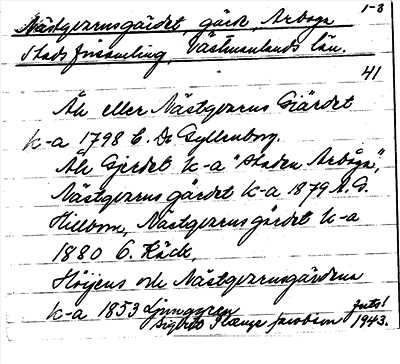 1-3
Nästgevarsgärdet, gärde, Arboga
Stads församling, Västmanlands län.
41
Åh eller Nästgevarns Giärdet
k-a 1798 C. Dr Gyllenborg.
Åh Gjerdet k-a "Staden Arboga",
Nästgevarns gärdet k-a 1879 A. G.
Hillbom, Nästgevarns gärdet k-a
1880 C. Räck,
Höijens och Nästgevarnsgärdena
k-a 1853 Ljunggren
Sigfrid Jacobson juli 1943.